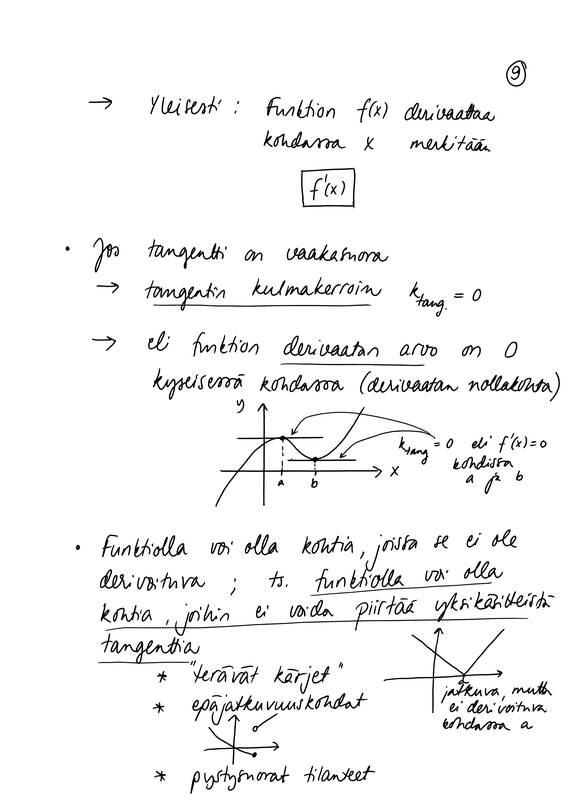 9
→ Yleisesti : Funktion f(x) derivaattaa
kohdassa x merkitään
f'(x)
• Jos tangentti on vaakasuora
→ tangentin kulmakerroin k tang. = 0
→ eli funktion derivaatan arvo on 0
kyseisessä kohdassa (derivaatan nollakohta)
y
k tang = 0 eli f'(x)=0
kohdissa
a ja b
x
a b
• Funktiolla voi olla kohtia, joissa se ei ole
derivoituva ; ts. funktiolla voi olla
kohtia, joihin ei voida piirtää yksikäsitteistä
tangenttia
* "terävät kärjet"
* epäjatkuvuuskohdat
a
jatkuva, mutta
ei derivoituva
kohdassa a
* pystysuorat tilanteet